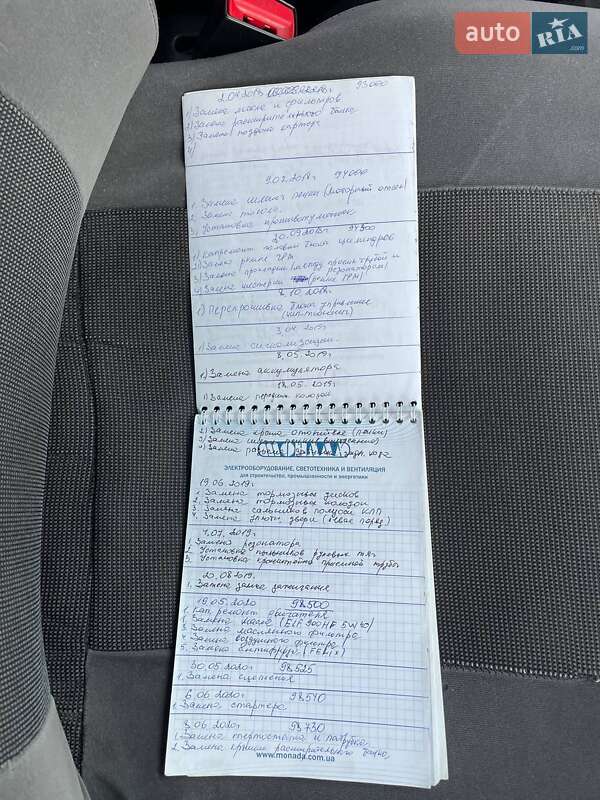 auto RIA .com
93000
1) Замена масла и фильтров
2) Замена расширительного бачка
3) Замена поддона картера
4)
9.02.2018г 94000
1. Замена шланг печки (моторный отсек)
2. Замена
3. Установка противотуманок
20.09.2018г 94300
1) Капремонт головки блока цилиндров
2) Замена ремня ГРМ
3) Замена прокладки (между приемн. трубой и резонатором)
4) Замена шестерни (ремня ГРМ)
8.10.2018г
1) Перепрошивка блока управления
(чип-тюнинг)
3.04.2019г
1) Замена сигнализации
8.05.2019г
1) Замена аккумулятора
18.05.2019г
1) Замена передних колодок
2) Замена крана отопителя (печки)
4) Замена
ЭЛЕКТРООБОРУДОВАНИЕ, СВЕТОТЕХНИКА И ВЕНТИЛЯЦИЯ
для строительства, промышленности и энергетики
19.06.2019г.
1. Замена тормозных дисков
2. Замена тормозных колодок
3. Замена сальников полуоси КПП
4. Замена двери (левая перед)
4.07.2019г.
1. Замена резонатора
2. Установка пыльников рулевых тяг
3. Установка кронштейна приемной трубы
20.08.2019г.
1. Замена замка зажигания
19.05.2020 98500
1. Кап. ремонт двигателя
2. Замена масла (ELF 900 HF 5W40)
3. Замена масляного фильтра
4. Замена воздушного фильтра
5. Замена антифриза (FELIX)
30.05.2020г 98525
1. Замена сцепления
6.06.2020г 98540
1. Замена стартера
8.06.2020г 98730
1. Замена термостата и патрубка
2. Замена крышки расширительного бачка
www.monada.com.ua